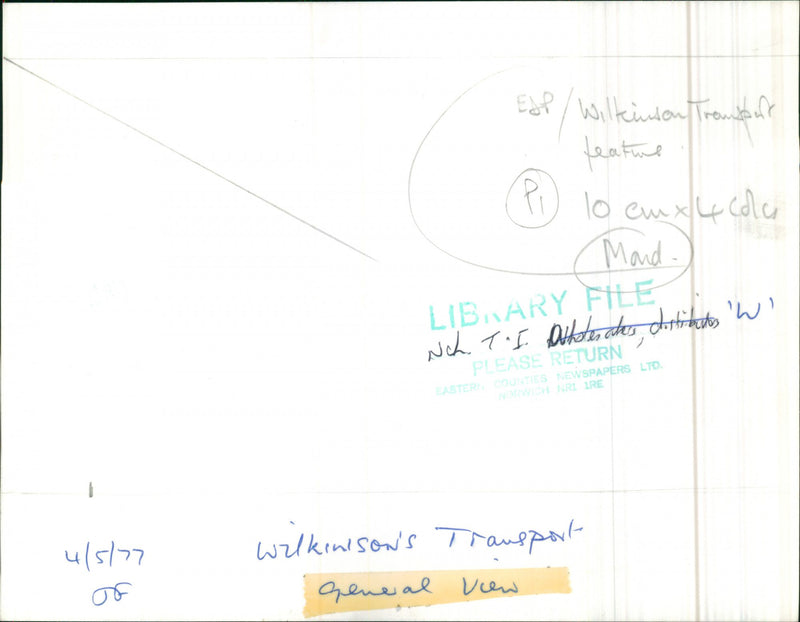 EDP / Wilkinson Transport
feature
P1 10 cm x 4 cols
Mond.
LIBRARY FILE
Nch. T.I. Wholesalers, distributors 'W'
PLEASE RETURN
EASTERN COUNTIES NEWSPAPERS LTD.
NORWICH NR1 1RE
4/5/77 Wilkinson's Transport
General View